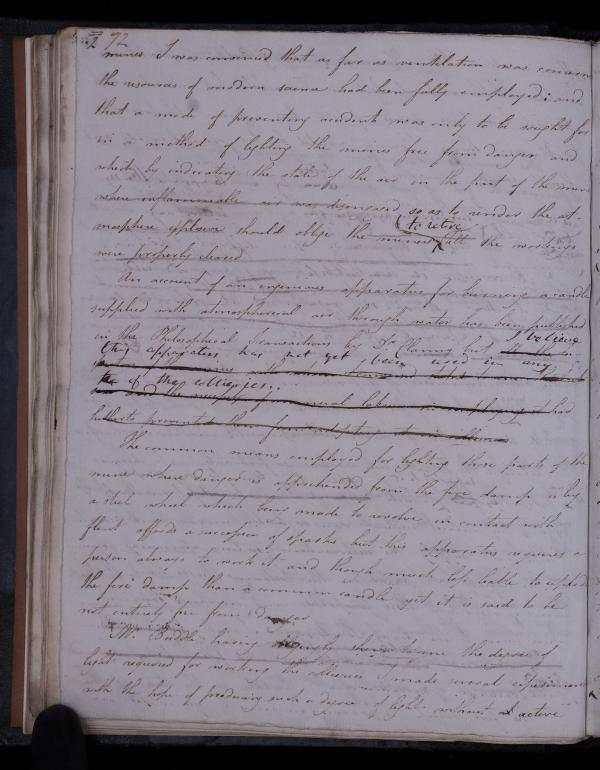 72
mines I was convinced that as far as ventilation was concern
the resources of modern science had been fully employed; and
that a mode of preventing accidents was only to be sought for
in a method of lighting the mines free from danger and
which by indicating the state of the air in the part of the mine
where inflammable air was disengaged so as to render the at-
mosphere explosive should oblige the miners to retire till the workings
were properly cleared
An account of an ingenious apparatus for burning a candle
supplied with atmospherical air through water has been published
in the Philosophical Transactions by Dr Clanny but I believe
this apparatus has not yet been used in any
of the collieries.
hitherto prevented them from adopting
The common means employed for lighting those parts of the
mine where danger is apprehended from the fire damp is by
a steel wheel which being made to revolve in contact with
flint affords a succession of sparks but this apparatus requires a
person always to work it and though much less liable to explode
the fire damp than a common candle yet it is said to be
not entirely free from danger
Mr. Buddle having shewn to me the degree of
light required for working the I made several experiments
with the hope of producing such a degree of light without active